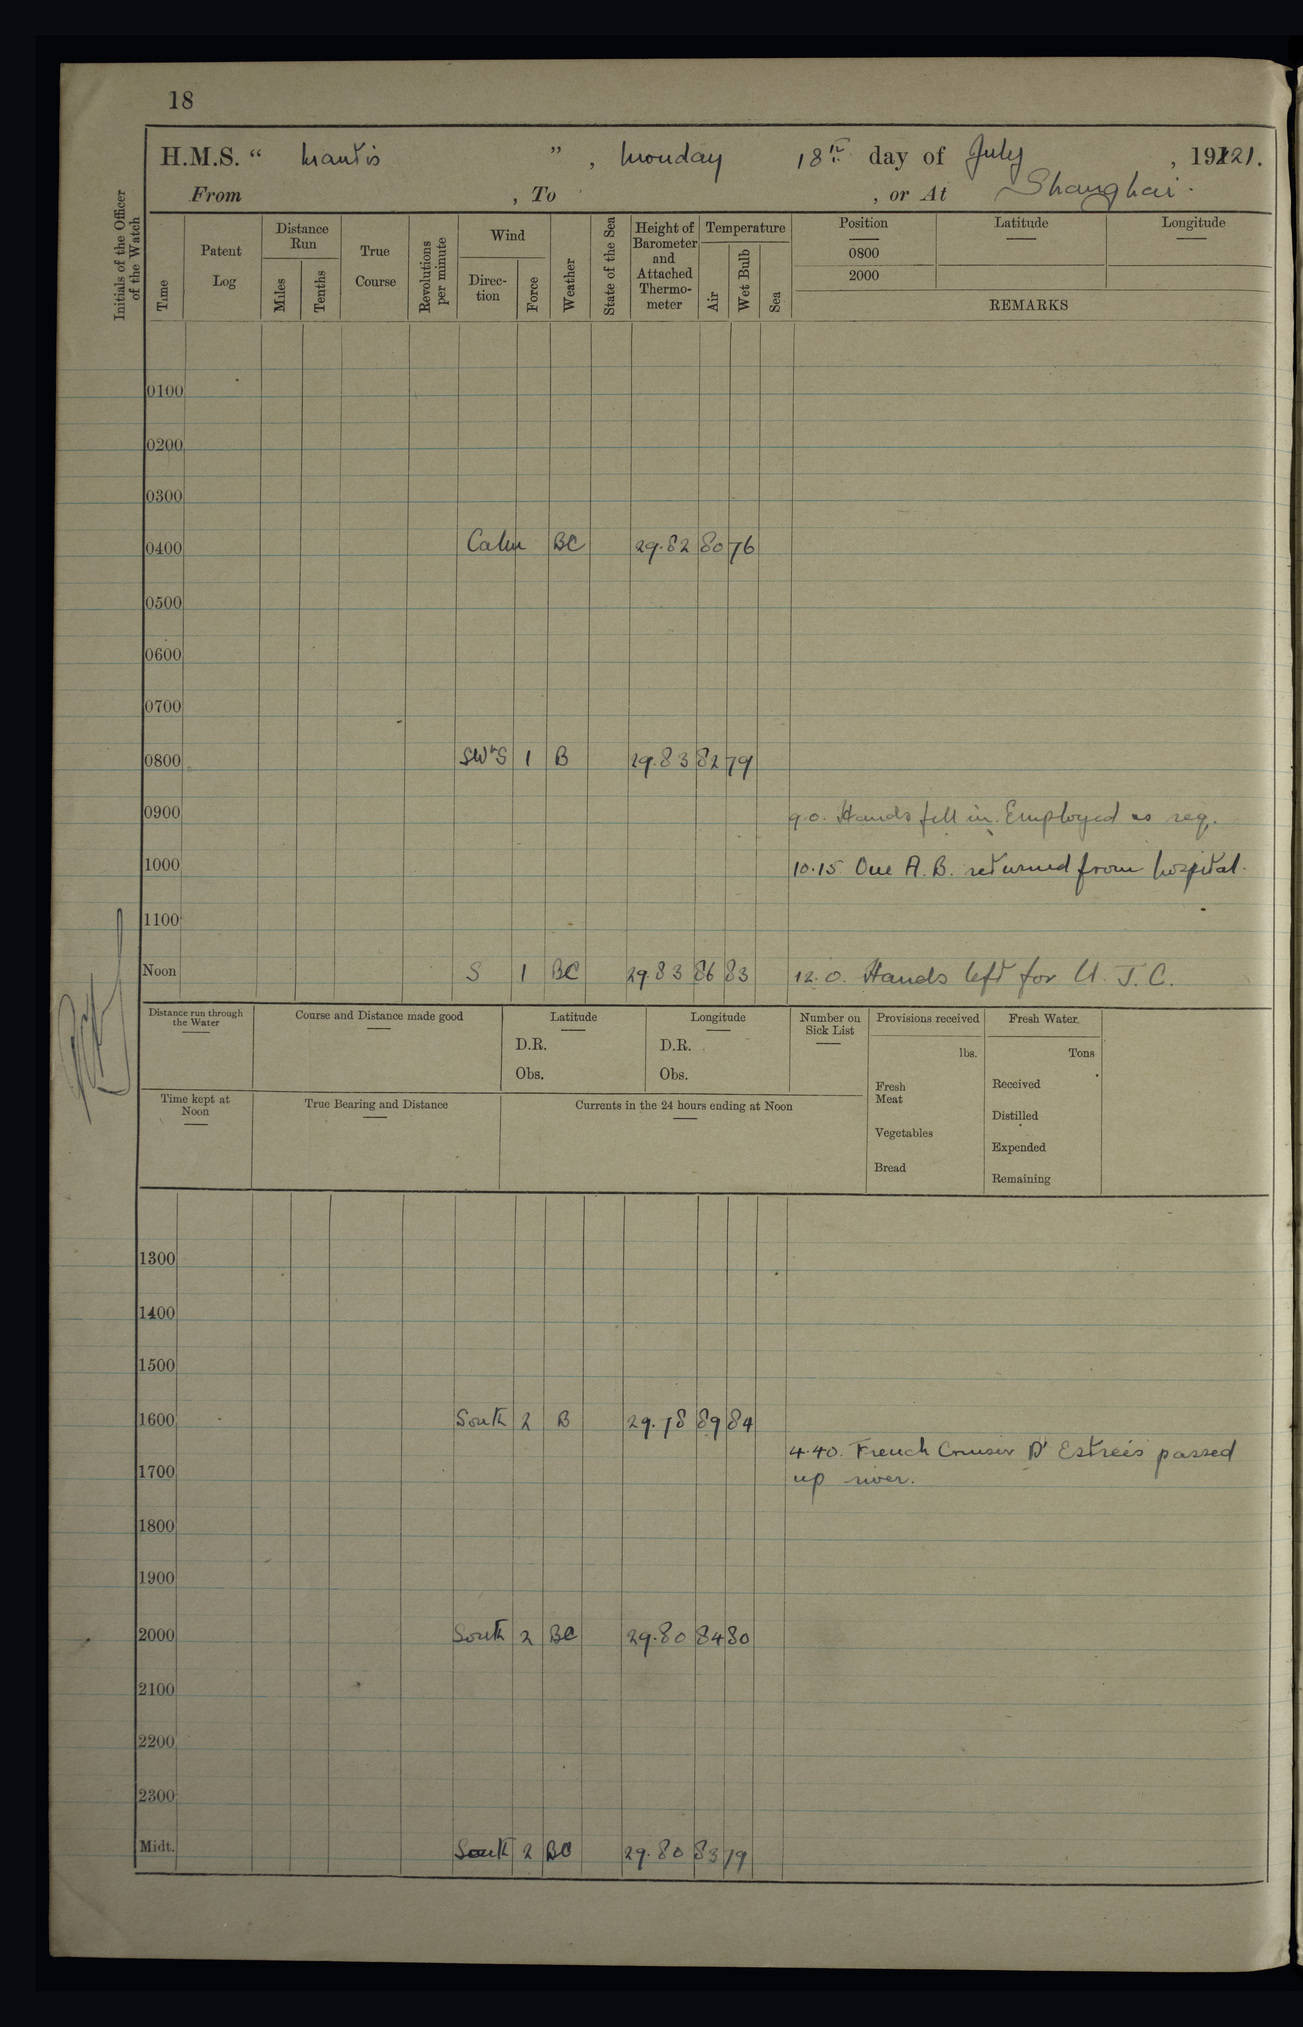 18
H.M.S. “ Mantis ” , Monday 18th day of July , 1921.
From , To , or At Shanghai.
Initials of the Officer of the Watch
Time
Patent Log
Distance Run
Miles
Tenths
True Course
Revolutions per minute
Wind
Direc-tion
Force
Weather
State of the Sea
Height of Barometer and Attached Thermo-meter
Temperature
Air
Wet Bulb
Sea
Position Latitude Longitude
0800
2000
REMARKS
0100
0200
0300
0400 Calm BC 29.82 80 76
0500
0600
0700
0800 SW'S 1 B 29.83 82 79
0900 9.0. Hands fell in. Employed as req.
1000 10.15 One A.B. returned from hospital.
1100
Noon S 1 BC 29.83 86 83 12.0. Hands left for U. J. C.
Distance run through the Water
Course and Distance made good
Latitude
D.R.
Obs.
Longitude
D.R.
Obs.
Number on Sick List
Provisions received
lbs.
Fresh Meat
Vegetables
Bread
Fresh Water
Tons
Received
Distilled
Expended
Remaining
Time kept at Noon
True Bearing and Distance
Currents in the 24 hours ending at Noon
1300
1400
1500
1600 South 2 B 29.78 89 84
4.40. French Cruiser D'Estreés passed
1700 up river.
1800
1900
2000 South 2 BC 29.80 84 80
2100
2200
2300
Midt. South 2 BC 29.80 83 79